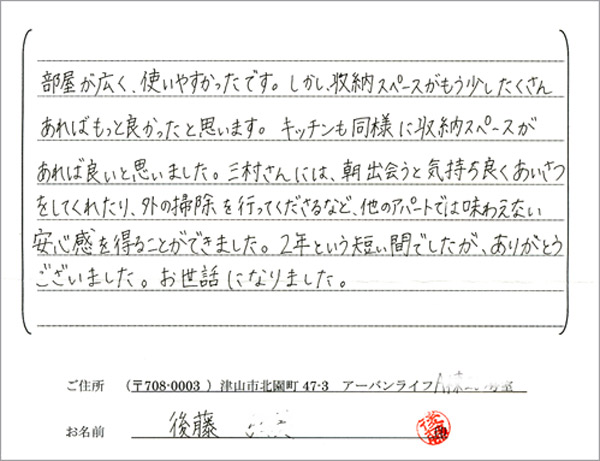 部屋が広く、使いやすかったです。しかし、収納スペースがもう少したくさん
あればもっと良かったと思います。キッチンも同様に収納スペースが
あれば良いと思いました。三村さんには、朝出会うと気持ち良くあいさつ
をしてくれたり、外の掃除を行ってくださるなど、他のアパートでは味わえない
安心感を得ることができました。2年という短い間でしたが、ありがとう
ございました。お世話になりました。
ご住所 (〒708-0003 ) 津山市北園町 47-3 アーバンライフ
お名前 後藤